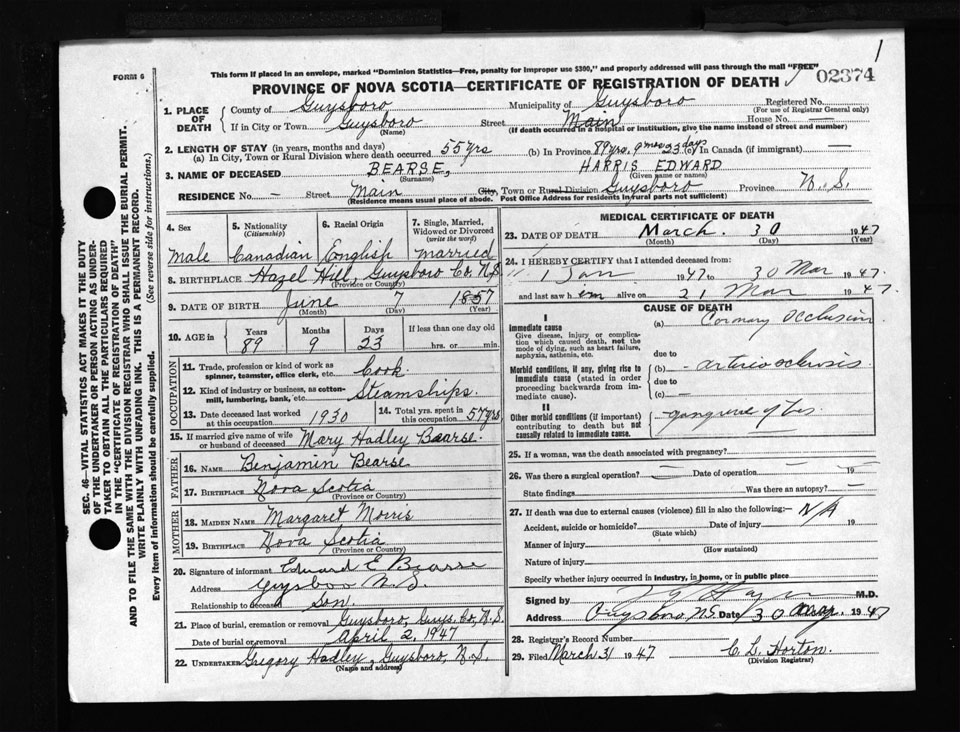 1
FORM 6
This form if placed in an envelope, marked "Dominion Statistics—Free, penalty for improper use $300," and properly addressed will pass through the mail "FREE"
PROVINCE OF NOVA SCOTIA—CERTIFICATE OF REGISTRATION OF DEATH
02374
1. PLACE OF DEATH County of Guysboro Municipality of Guysboro Registered No.
(For use of Registrar General only)
If in City or Town Guysboro Street Main House No. —
(Name) (If death occurred in a hospital or institution, give the name instead of street and number)
2. LENGTH OF STAY (in years, months and days)
(a) In City, Town or Rural Division where death occurred 55 yrs (b) In Province 89 yrs. 9 mos 23 days (c) In Canada (if immigrant) —
3. NAME OF DECEASED BEARSE, HARRIS EDWARD
(Surname) (Given name or names)
RESIDENCE No. — Street Main City, Town or Rural Division Guysboro Province N.S.
(Residence means usual place of abode. Post Office Address for residents in rural parts not sufficient)
4. Sex
Male
5. Nationality (Citizenship)
Canadian
6. Racial Origin
English
7. Single, Married, Widowed or Divorced (write the word)
married
8. BIRTHPLACE Hazel Hill, Guysboro Co. N.S.
(Province or Country)
9. DATE OF BIRTH June 7 1857
(Month) (Day) (Year)
10. AGE in Years Months Days If less than one day old
89 9 23 hrs. or min.
OCCUPATION
11. Trade, profession or kind of work as spinner, teamster, office clerk, etc. Cook
12. Kind of industry or business, as cotton-mill, lumbering, bank, etc. Steamships.
13. Date deceased last worked at this occupation 1930
14. Total yrs. spent in this occupation 57 yrs
15. If married give name of wife or husband of deceased Mary Hadley Bearse.
FATHER
16. NAME Benjamin Bearse
17. BIRTHPLACE Nova Scotia
(Province or Country)
MOTHER
18. MAIDEN NAME Margaret Morris
19. BIRTHPLACE Nova Scotia
(Province or Country)
20. Signature of informant Edward E Bearse
Address Guysboro N.S.
Relationship to deceased Son.
21. Place of burial, cremation or removal Guysboro, Guys. Co, N.S.
Date of burial or removal April 2, 1947
22. UNDERTAKER Gregory Hadley, Guysboro, N.S.
(Name and address)
MEDICAL CERTIFICATE OF DEATH
23. DATE OF DEATH March 30 1947
(Month) (Day) (Year)
24. I HEREBY CERTIFY that I attended deceased from:
1 Jan 1947 to 30 Mar 1947
and last saw him alive on 21 Mar 1947.
CAUSE OF DEATH
I
Immediate cause
Give disease, injury or complication which caused death, not the mode of dying, such as heart failure, asphyxia, asthenia, etc.
(a) Coronary Occlusion
due to
Morbid conditions, if any, giving rise to immediate cause (stated in order proceeding backwards from immediate cause).
(b) arteriosclerosis
due to
(c) —
II
Other morbid conditions (if important) contributing to death but not causally related to immediate cause.
gangrene of toes.
25. If a woman, was the death associated with pregnancy?
26. Was there a surgical operation? — Date of operation — 19
State findings Was there an autopsy? —
27. If death was due to external causes (violence) fill in also the following:— N/A
Accident, suicide or homicide? Date of injury 19
(State which)
Manner of injury
(How sustained)
Nature of injury
Specify whether injury occurred in industry, in home, or in public place
Signed by M.D.
Address Guysboro N.S. Date 30 Mar. 1947
28. Registrar's Record Number
29. Filed March 31 1947 C. L. Horton.
(Division Registrar)
SEC. 46—VITAL STATISTICS ACT MAKES IT THE DUTY
OF THE UNDERTAKER OR PERSON ACTING AS UNDER-
TAKER TO OBTAIN ALL THE PARTICULARS REQUIRED
IN THE "CERTIFICATE OF REGISTRATION OF DEATH"
AND TO FILE THE SAME WITH THE DIVISION REGISTRAR WHO SHALL ISSUE THE BURIAL PERMIT.
WRITE PLAINLY WITH UNFADING INK. THIS IS A PERMANENT RECORD.
Every item of information should be carefully supplied. (See reverse side for instructions.)